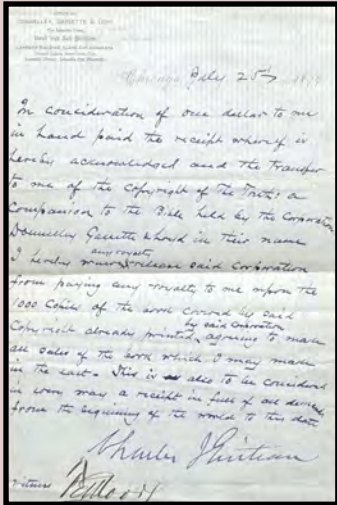 OFFICE OF
DONNELLEY, GASSETTE & LOYD
Chicago July 25th
In consideration of one dollar to me
in hand paid the receipt whereof is
hereby acknowledged and the transfer
to me of the copyright of The Truth: a
Companion to the Bible held by the Corporation
Donnelley Gassette & Loyd in their name
any royalty
I hereby release said Corporation
from paying any royalty to me upon the
1000 Copies of the work covered by said
by said corporation
Copyright already printed, agreeing to make
all sales of the work which I may make
in the east. This is also to be considered
in every way a receipt in full of all demands
from the beginning of the world to this date
Charles J Guiteau
Witness